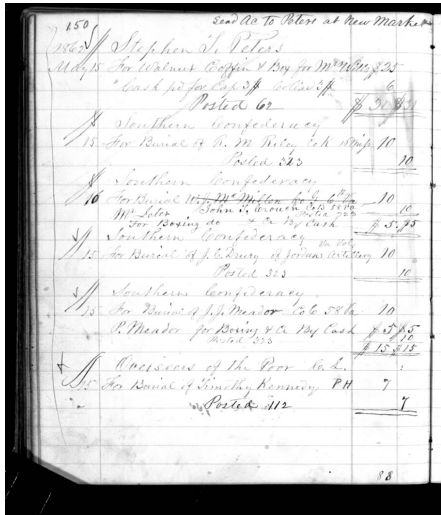 150
Send Ac to Peters at New Market
1862 Stephen T. Peters
May 15 For Walnut Coffin & Box for 25
" Cash pd for Cap 3$ Collar 3$ 6
Posted 62 $ 31 $ 31
Southern Confederacy
15 For Burial of R. M. Riley Co K 10
Posted 323 10
Southern Confederacy
16 For Burial W. J. McMillon Co G 6th Va 10
John T. Crouch Co B 58 Va 10
For Boxing &c By Cash $ 5. $5
Southern Confederacy
15 For Burial of J. C. Drury of Jordan Artillery 10
Posted 323 10
Southern Confederacy
15 For Burial of J. J. Meador Co C 58 Va 10
P. Meador for Boxing & C By Cash $ 5 $ 5
Posted 323 10
$ 15 $ 15
Overseers of the Poor
15 For Burial of Timothy Kennedy P H 7
Posted 112 7
88